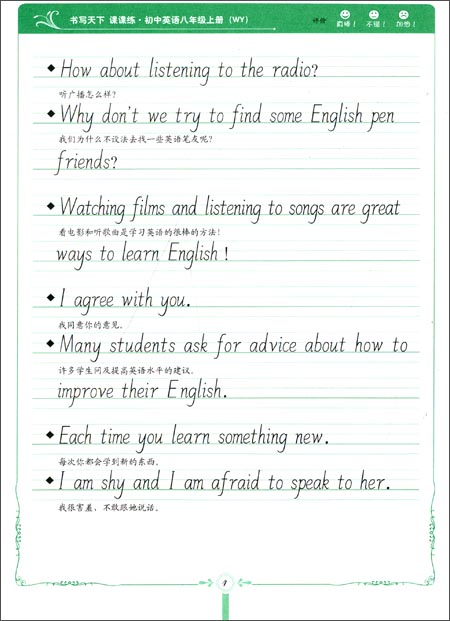 书写天下 课课练·初中英语八年级上册（WY）
评价 真棒！ 不错！ 加油！
◆How about listening to the radio?
听广播怎么样？
◆Why don't we try to find some English pen
我们为什么不设法去找一些英语笔友呢？
friends?
◆Watching films and listening to songs are great
看电影和听歌曲是学习英语的很棒的方法！
ways to learn English !
◆I agree with you.
我同意你的意见。
◆Many students ask for advice about how to
许多学生问及提高英语水平的建议。
improve their English.
◆Each time you learn something new.
每次你都会学到新的东西。
◆I am shy and I am afraid to speak to her.
我很害羞，不敢跟她说话。
4